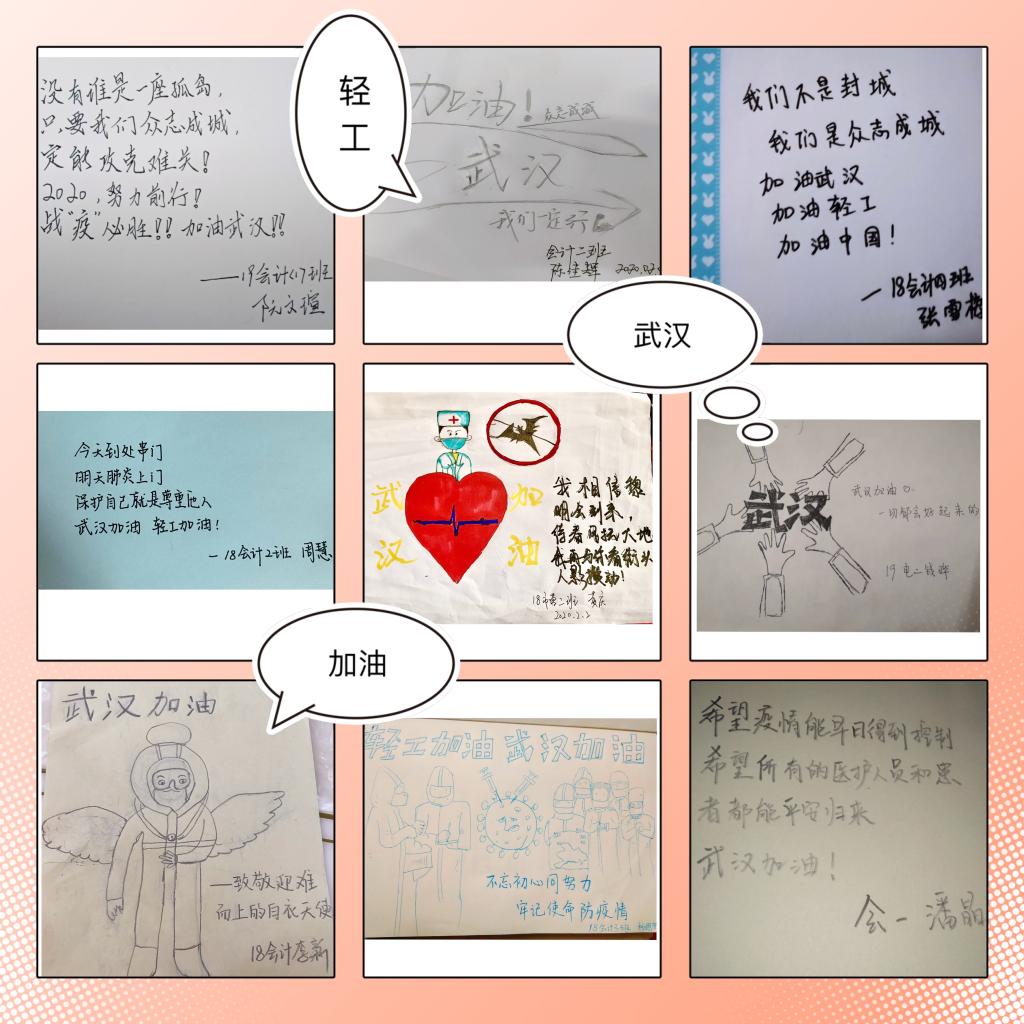 轻
工
没有谁是一座孤岛,
只要我们众志成城,
定能攻克难关!
2020,努力前行!
战"疫"必胜!! 加油武汉!!
——19会计(1)班
阮文瑄
加油! 众志成城
武汉
我们一定行
会计二班
陈佳辉 2020.02
我们不是封城
我们是众志成城
加油武汉
加油轻工
加油中国!
—18会计四班
张雪梅
武汉
今天到处串门
明天肺炎上门
保护自己就是尊重他人
武汉加油 轻工加油!
—18会计2班 周慧
武
汉
加
油
我相信黎
明会到来,
待春风抚大地
我再与你看街头
人影攒动!
18市营二班
2020.2.2
武汉
武汉加油
一切都会好起来的
19电二钱晔
加油
武汉加油
——致敬迎难
而上的白衣天使
18会计李新
轻工加油 武汉加油
不忘初心同努力
牢记使命防疫情
18会计二班
希望疫情能早日得到控制
希望所有的医护人员和患
者都能平安归来
武汉加油!
会一 潘晶